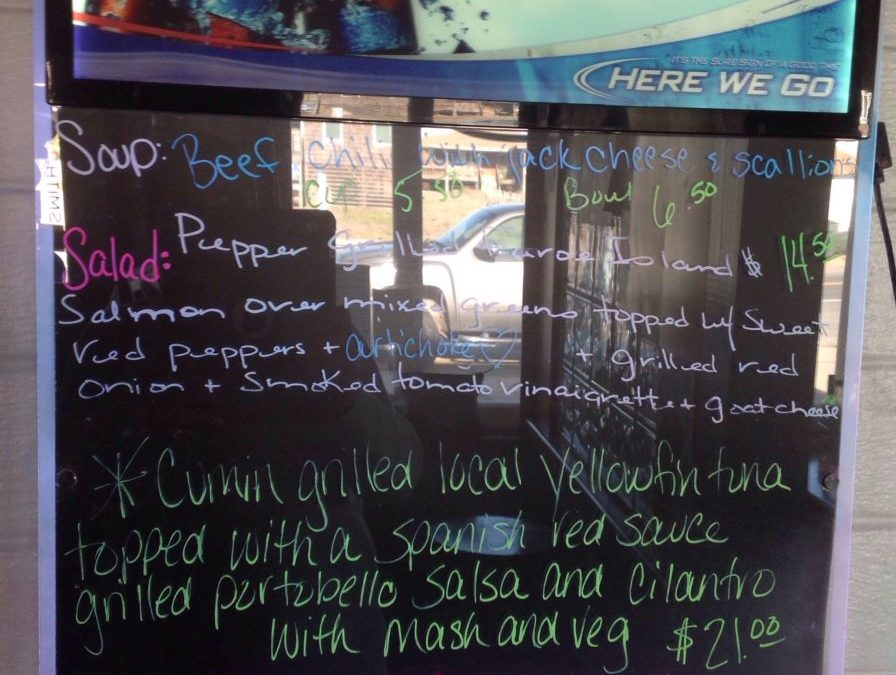 IT'S THE SURE SIGN OF A GOOD TIME
HERE WE GO
Soup: Beef Chili with Jack cheese & scallions
Cup 5.50 Bowl 6.50
Salad: Pepper Grilled Faroe Island $ 14.50
Salmon over mixed greens topped w/ sweet
red peppers + artichoke ♡ + grilled red
onion + smoked tomato vinaigrette + goat cheese
* Cumin grilled local Yellowfin tuna
topped with a spanish red sauce
grilled portobello salsa and cilantro
with mash and veg $21.00